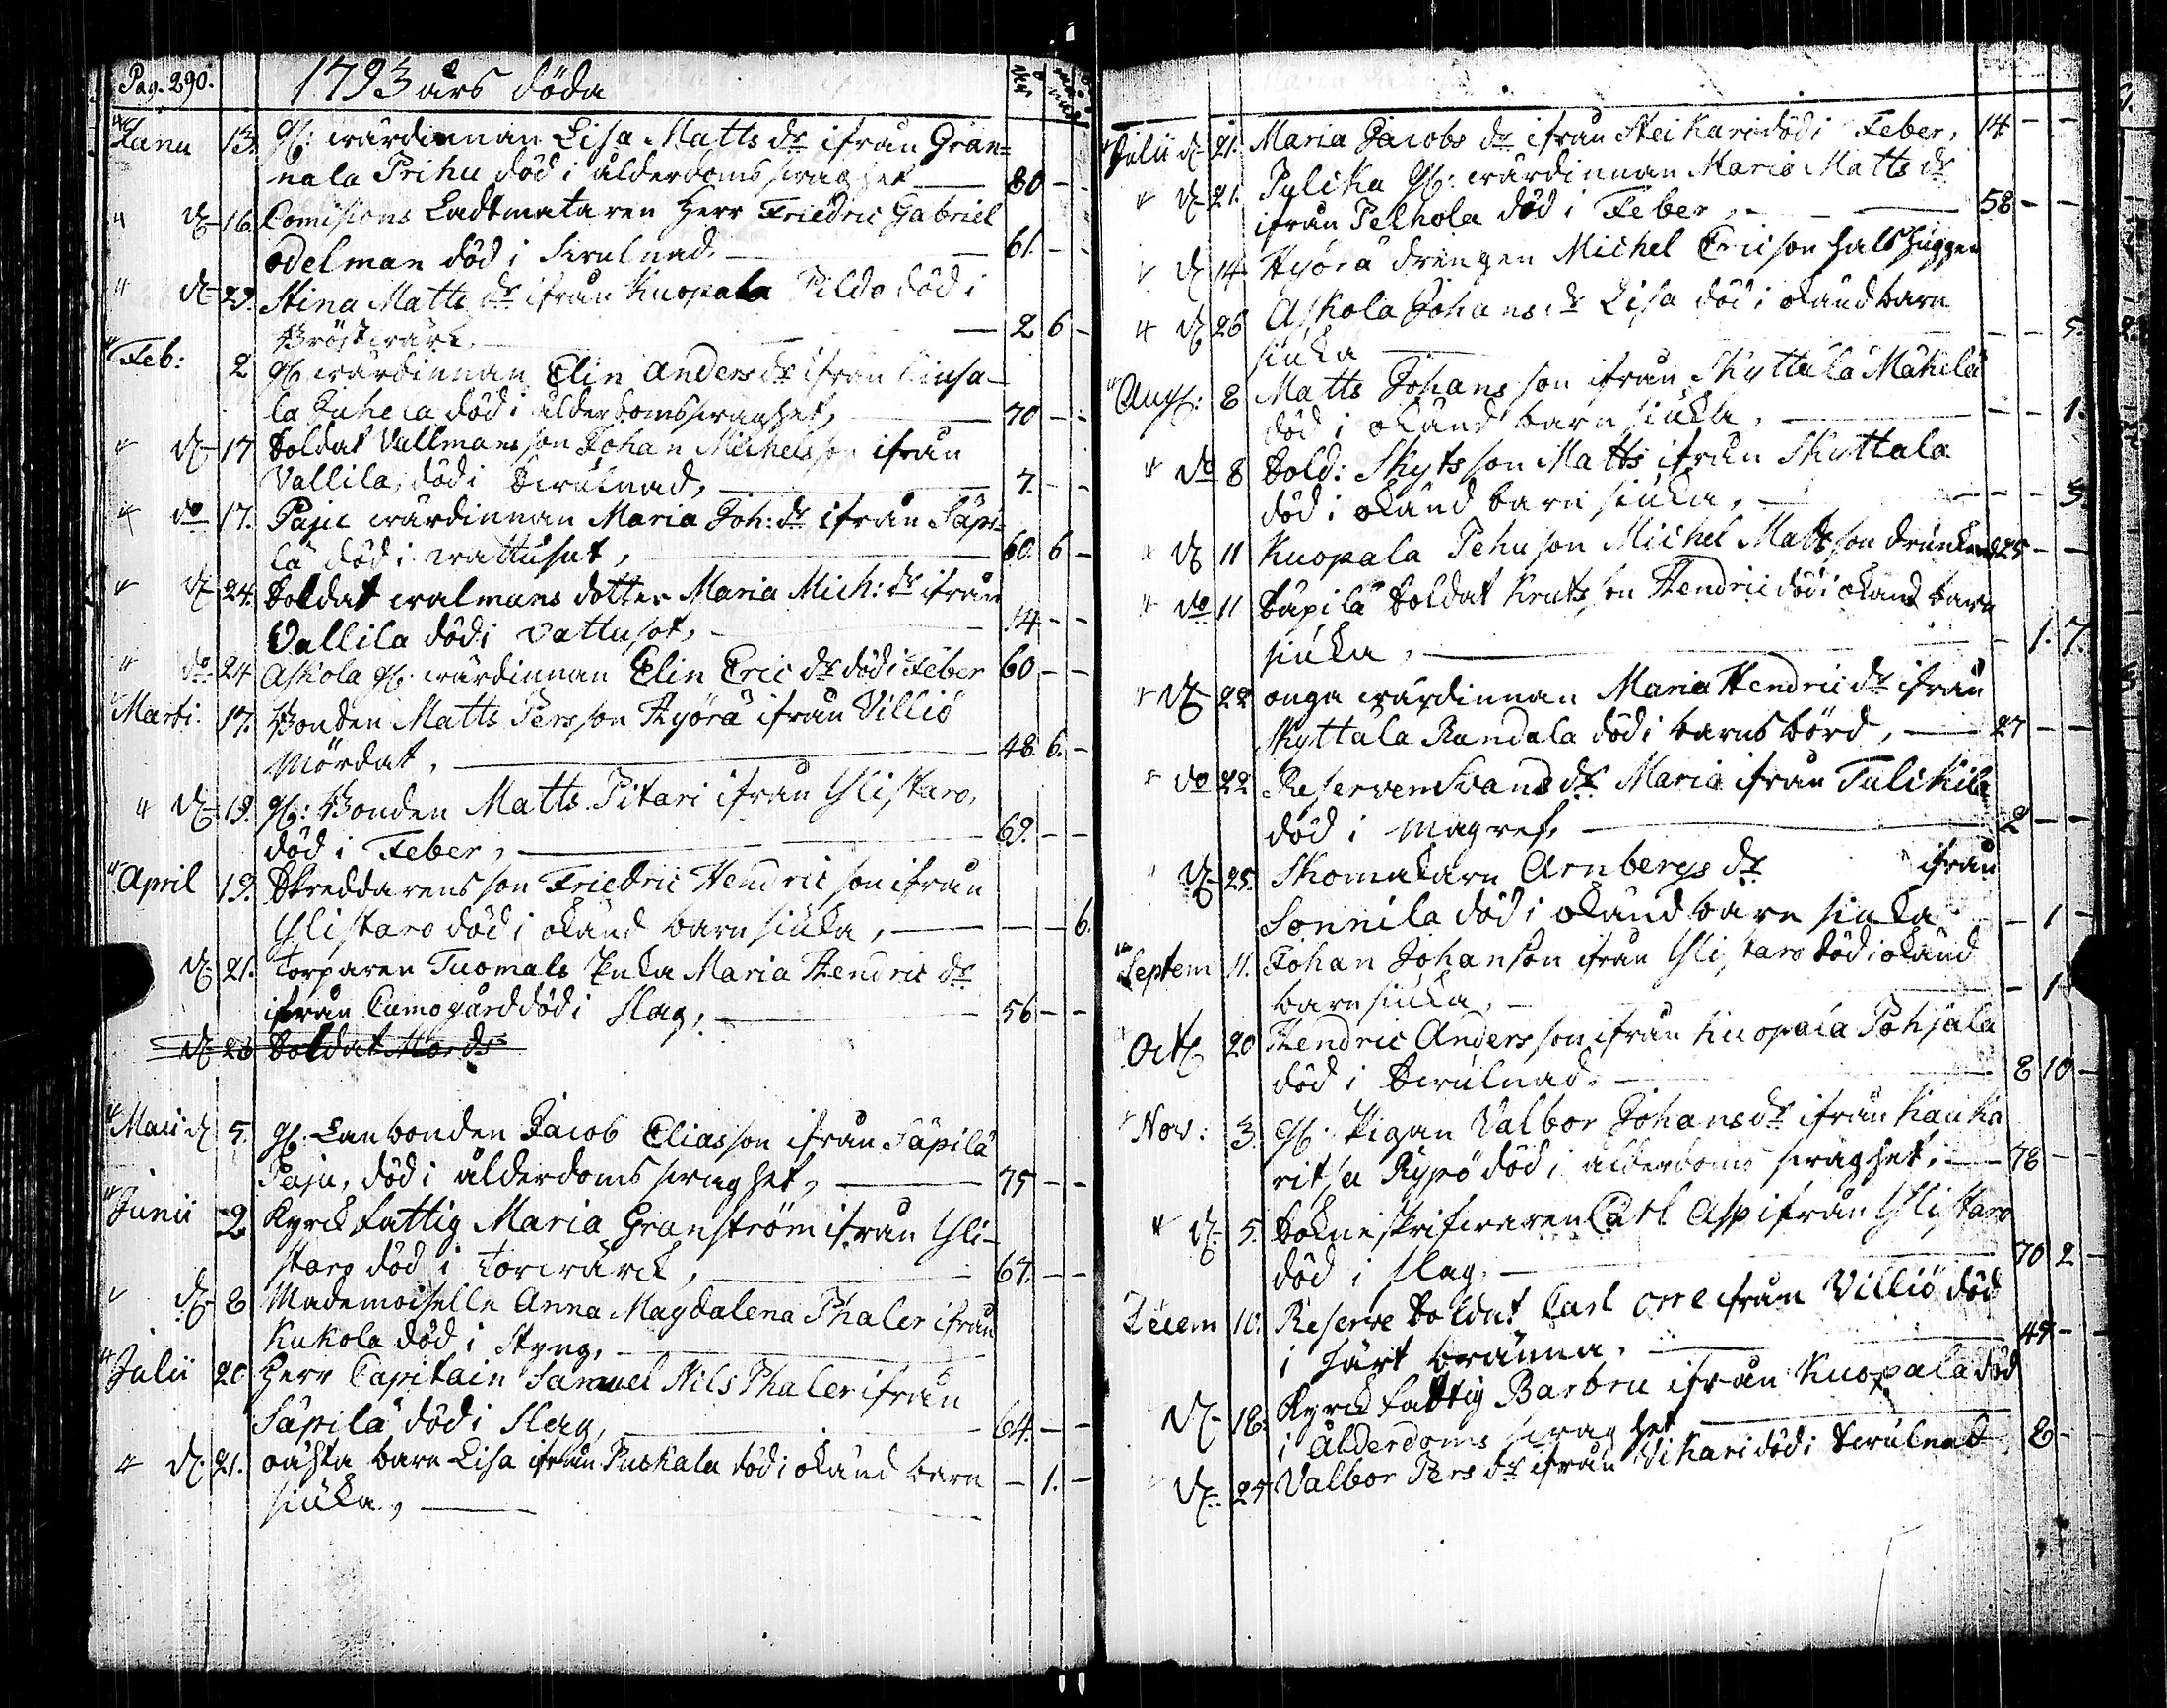 Pag. 290.
1793 års döda
Janu 13. gl: wärdinnan Lisa Matts dr ifrån Gran=
nala Prihu död i ålderdoms swaghet 80 - -
d 16. Comisions Ladtmataren Herr Friedric Gabriel
odelman död i swulnad 61. - -
d 29. Stina Matts dr ifrån Kuopala Pildo död i
Bröstwärk. 2 6 -
Feb: 2 gl wärdinnan Elin Anders dr ifrån
la död i ålderdoms swaghet, 70 - -
d 17 Soldat Vallmans son Johan Michelsson ifrån
Vallila, död i Swulnad, 7. - -
do 17. Paju wärdinnan Maria Joh: dr ifrån Säpi=
lä död i wattusot, 60 6 -
d 24. Soldat walmans dotter Maria Mich: dr ifrån
Vallila död i vattusot, 14 - -
do 24 Askola gl. wärdinnan Elin Eric dr död i Feber 60 - -
Marti. 17. Bonden Matts Persson Hyörä ifrån Villiö
Mördat, 48 6. -
d 19. gl: Bonden Matts Pitari ifrån Ylistaro,
död i Feber, 69. - -
April 19. Skreddarens son Friedric Hendricson ifrån
Ylistaro död i okänd barnsiuka, - - 6.
d 21. Torparen Tuomals Enka Maria Hendric dr
ifrån Cumogård död i Slag, 56 - -
d 28 Soldat Mords
Maii d 5. gl. Lanbonden Jacob Eliasson ifrån Säpilä
Paju, död i ålderdoms swaghet, 75 - -
Junii 2 Kyrck fattig Maria Granström ifrån Yli-
staro död i torwärck, 67. - -
d 8 Mademoiselle Anna Magdalena Phaler ifrån
Kukola död i Styng,
Julii 20 Herr Capitain Samuel Nils Phaler ifrån
Säpilä död i Slag, 64. - -
d. 21. oäkta barn Lisa ifrån Puskala död i okänd barn
siuka, - 1. -
Julii d 21. Maria Jacobs dr ifrån Steikari död i Feber, 14 - -
d 21. Pulika gl: wärdinnan Maria Matts dr
ifrån Pelhola död i Feber, 58 - -
d 14 Hyörä drängen Michel Ericson halshuggen
d 26 Askola Johans dr Lisa död i okänd barn
siuka - - 5.
Augs: 8 Matts Johansson ifrån Skyttälä Mäkelä
död i okänd barnsiuka, - - 1.
do 8 Sold: Skyts son Matts ifrån Skyttala
död i okänd barn siuka, - - 5.
d 11 Kuopala Pehu son Michel Mattsson drunknad 25 - -
do 11 Säpilä Soldat Kruts son Hendric död i okänd barn
siuka, - 1. 7.
d 22 onga wärdinnan Maria Hendric dr ifrån
Skyttala Randala död i barnsbörd, 27 - -
do 22 Reserven Svans dr Maria ifrån Tulikila
död i Magref, 2 - -
d 25. Skomakarn Arnbergs dr ifrån
Sonnila död i okänd barn siuka - 1 -
Septem 11. Johan Johanson ifrån Ylistaro död i okänd
barnsiuka, - 1 -
Oct 20 Hendric Andersson ifrån Kuopala Pohjala
död i Swulnad, 8 10 -
Nov: 3 gl. Pigan Valbor Johans dr ifrån Kauka
ritsa Rypö död i ålderdoms swaghet, 78 - -
d. 5. Sokneskrifwaren Carl Asp ifrån Ylistaro
död i slag, 70 2 -
Decem 10. Reserve Soldat Carl orre ifrån Villiö död
i hårt bränna. 45 - -
d 18. Kyrck fattig Barbru ifrån Kuopala död
i Ålderdoms swaghet
d 25 Valbor Pers dr ifrån Vikari död i Swulnad 8 -